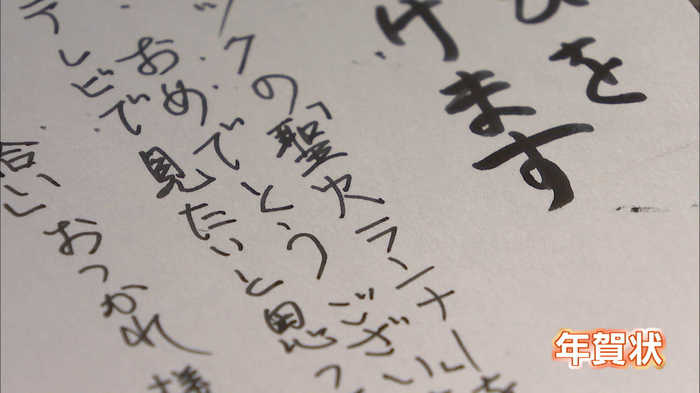 びを
げます
ックの「聖火ランナー
おめでとうござい
テレビで見たいと思っ
合い おつかれ様
年賀状